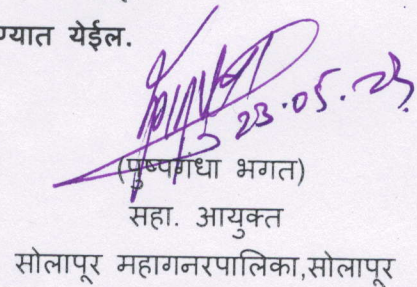 ण्यात येईल.
23.05.23
(पुष्पगंधा भगत)
सहा. आयुक्त
सोलापूर महागनरपालिका,सोलापूर